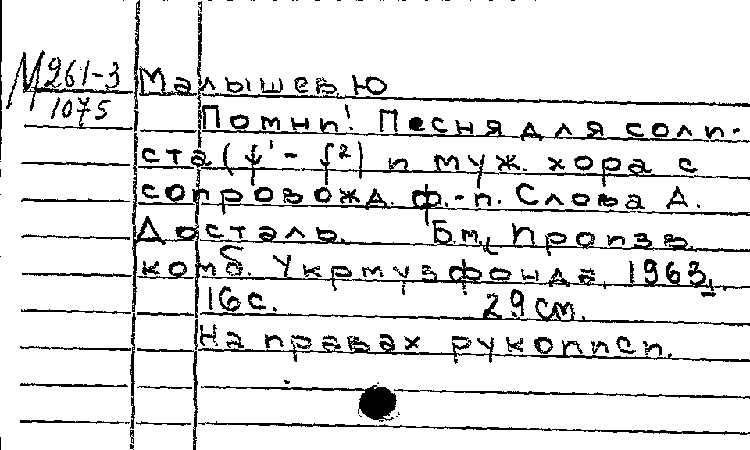 М261-3
1075
Малышев Ю
Помни! Песня для соли-
ста (f¹ - f²) и муж. хора с
сопровожд. ф.-п. Слова А.
Досталь. Б.м., Произв.
комб. Укрмузфонда, 1963.
16 с. 29 см.
На правах рукописи.